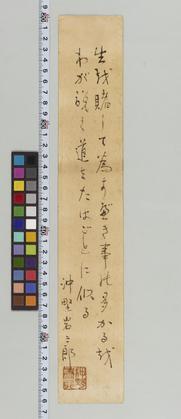 生を賭して為すべき事の多かるを
わが説く道はたはごとに似る
沖野岩三郎